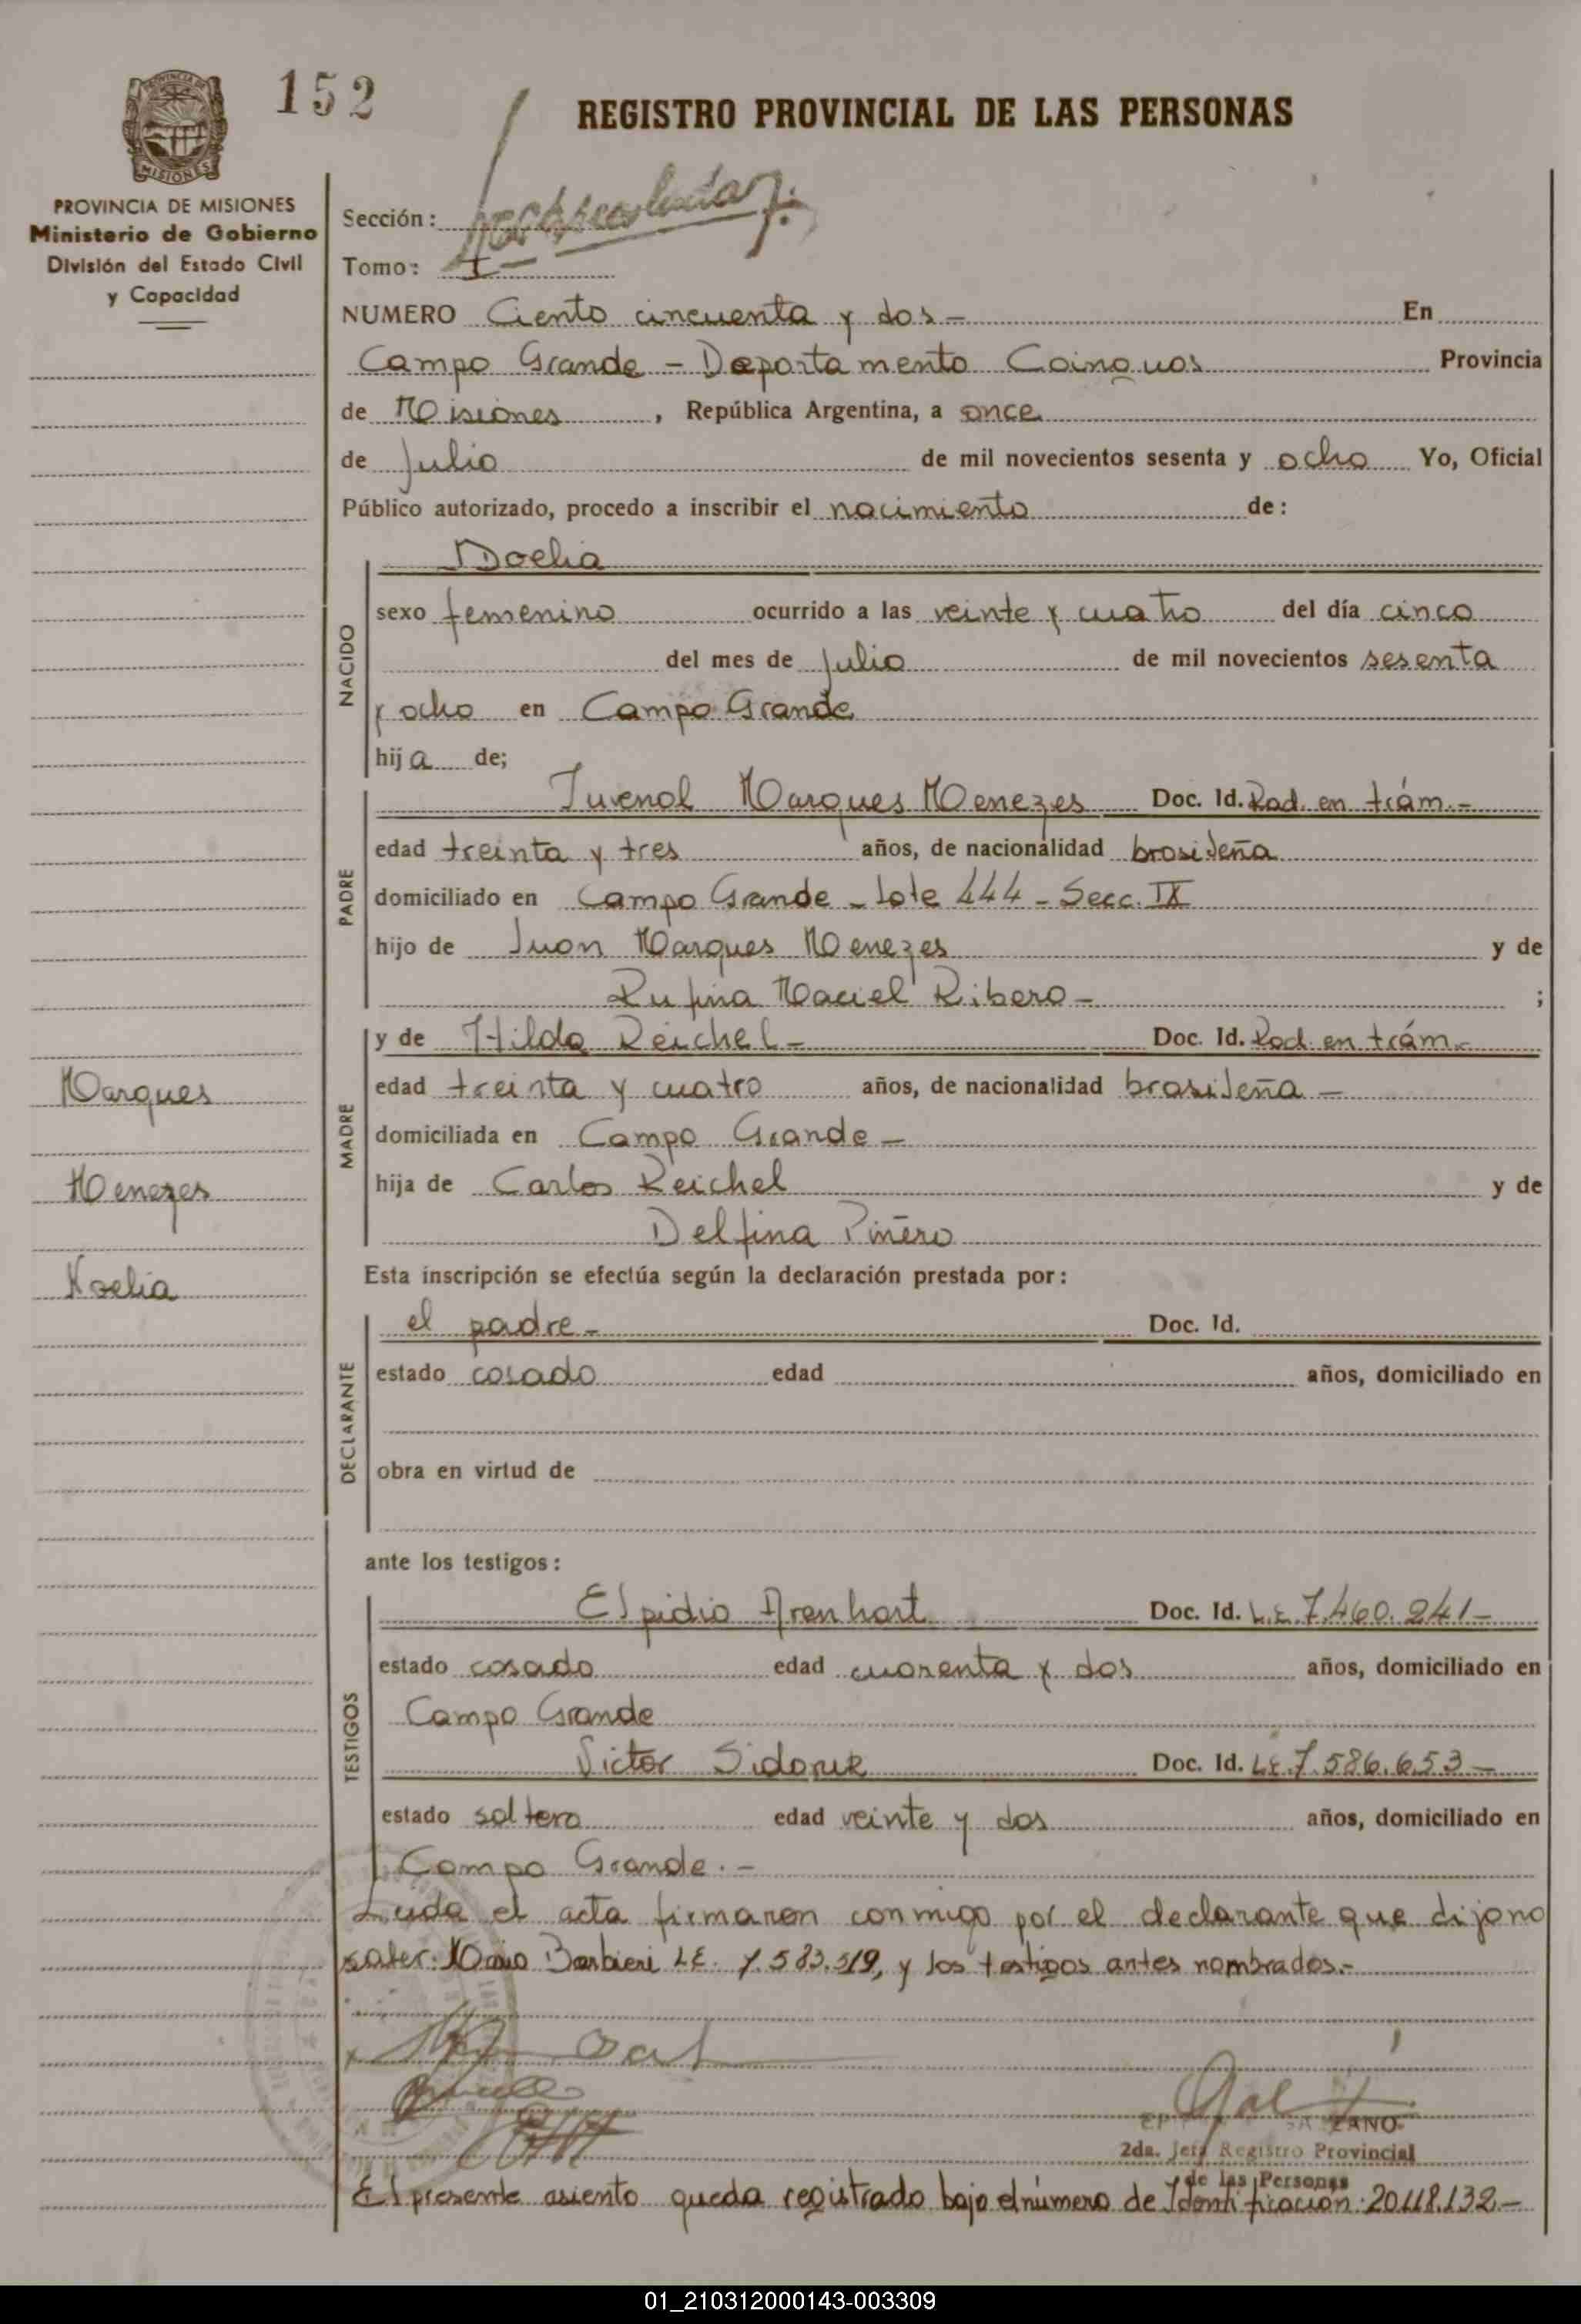 152
REGISTRO PROVINCIAL DE LAS PERSONAS
PROVINCIA DE
MISIONES
PROVINCIA DE MISIONES
Ministerio de Gobierno
División del Estado Civil
y Capacidad
Sección:
Tomo: I
NUMERO Ciento cincuenta y dos - En
Campo Grande - Departamento Cainguas Provincia
de Misiones, República Argentina, a once
de Julio de mil novecientos sesenta y ocho Yo, Oficial
Público autorizado, procedo a inscribir el nacimiento de:
NACIDO
Noelia
sexo femenino ocurrido a las veinte y cuatro del día cinco
del mes de Julio de mil novecientos sesenta
y ocho en Campo Grande
hija de;
PADRE
Juvenal Marques Menezes Doc. Id. Rad. en trám.-
edad treinta y tres años, de nacionalidad brasileña
domiciliado en Campo Grande - Lote 444 - Secc. IX
hijo de Juan Marques Menezes y de
Rufina Maciel Ribero - ;
MADRE
y de Hilda Reichel - Doc. Id. Rad. en trám.-
edad treinta y cuatro años, de nacionalidad brasileña -
domiciliada en Campo Grande -
hija de Carlos Reichel y de
Delfina Piñero
Marques
Menezes
Noelia
Esta inscripción se efectúa según la declaración prestada por:
DECLARANTE
el padre - Doc. Id.
estado casado edad años, domiciliado en
obra en virtud de
ante los testigos:
TESTIGOS
Elpidio Arenhart Doc. Id. L.E. 7.460.241-
estado casado edad cuarenta y dos años, domiciliado en
Campo Grande
Victor Sidoruk Doc. Id. L.E. 7.586.653-
estado soltero edad veinte y dos años, domiciliado en
Campo Grande.-
Leida el acta firmaron conmigo por el declarante que dijo no
saber: Mario Barbieri L.E. 7.583.519, y los testigos antes nombrados.-
ZANO
2da. Jefa Registro Provincial
de las Personas
El presente asiento queda registrado bajo el número de Identificación: 20.118.132.-
01_210312000143-003309